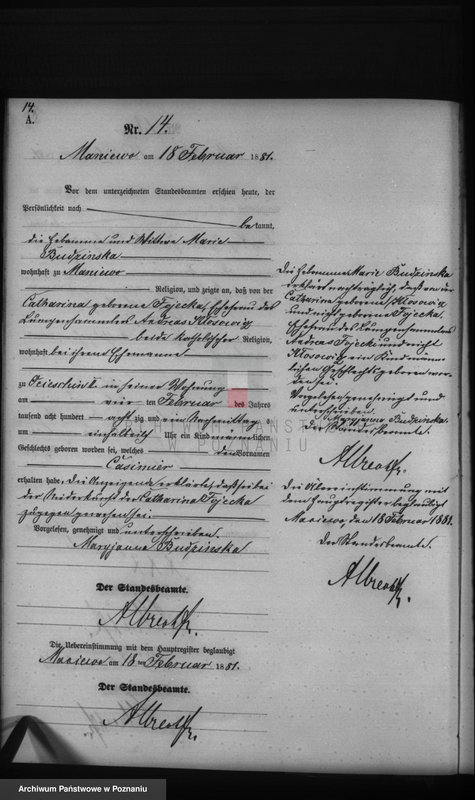 14.
A.
Nr. 14.
Maniewo am 18 Februar 1881.
Vor dem unterzeichneten Standesbeamten erschien heute, der
Persönlichkeit nach
bekannt,
die Hebamme und Wittwe Marie
Budzinska
wohnhaft zu Maniewo
Religion, und zeigte an, daß von der
Catharina geborene Fojecka, Ehefrau des
Lumpensammlers Andreas Klosowiz
beide katholischer Religion,
wohnhaft bei ihrem Ehemanne
zu in seiner Wohnung
am vier ten Februar des Jahres
tausend acht hundert achtzig und ein Nachmittags
um ein halb Uhr ein Kind männlichen
Geschlechts geboren worden sei, welches den Vornamen
Casimier
erhalten habe, die Anzeigende erklärte, daß sie bei
der Niederkunft der Catharina Fojecka
zugegen gewesen sei.
Vorgelesen, genehmigt und unterschrieben.
Maryjanna Budzinska
Der Standesbeamte.
Albrecht.
Die Uebereinstimmung mit dem Hauptregister beglaubigt
Maniewo am 18 ten Februar 1881.
Der Standesbeamte.
Albrecht.
Die Hebamme Marie Budzinska
erklärt nachträglich, daß von der
Catharina geborene Klosowiz
und nicht geborene Fojecka,
Ehefrau des Lumpensammlers
Andreas Fojecki und nicht
Klosowiz ein Kind männ-
lichen Geschlechts geboren wor-
den sei.
Vorgelesen genehmigt und
unterschrieben.
Maryjanna Budzinska
Der Standesbeamte.
Albrecht.
Die Übereinstimmung mit
dem Hauptregister beglaubigt
Maniewo, den 18 Februar 1881.
Der Standesbeamte.
Albrecht.
ARCHIWUM PAŃSTWOWE
W POZNANIU
Archiwum Państwowe w Poznaniu